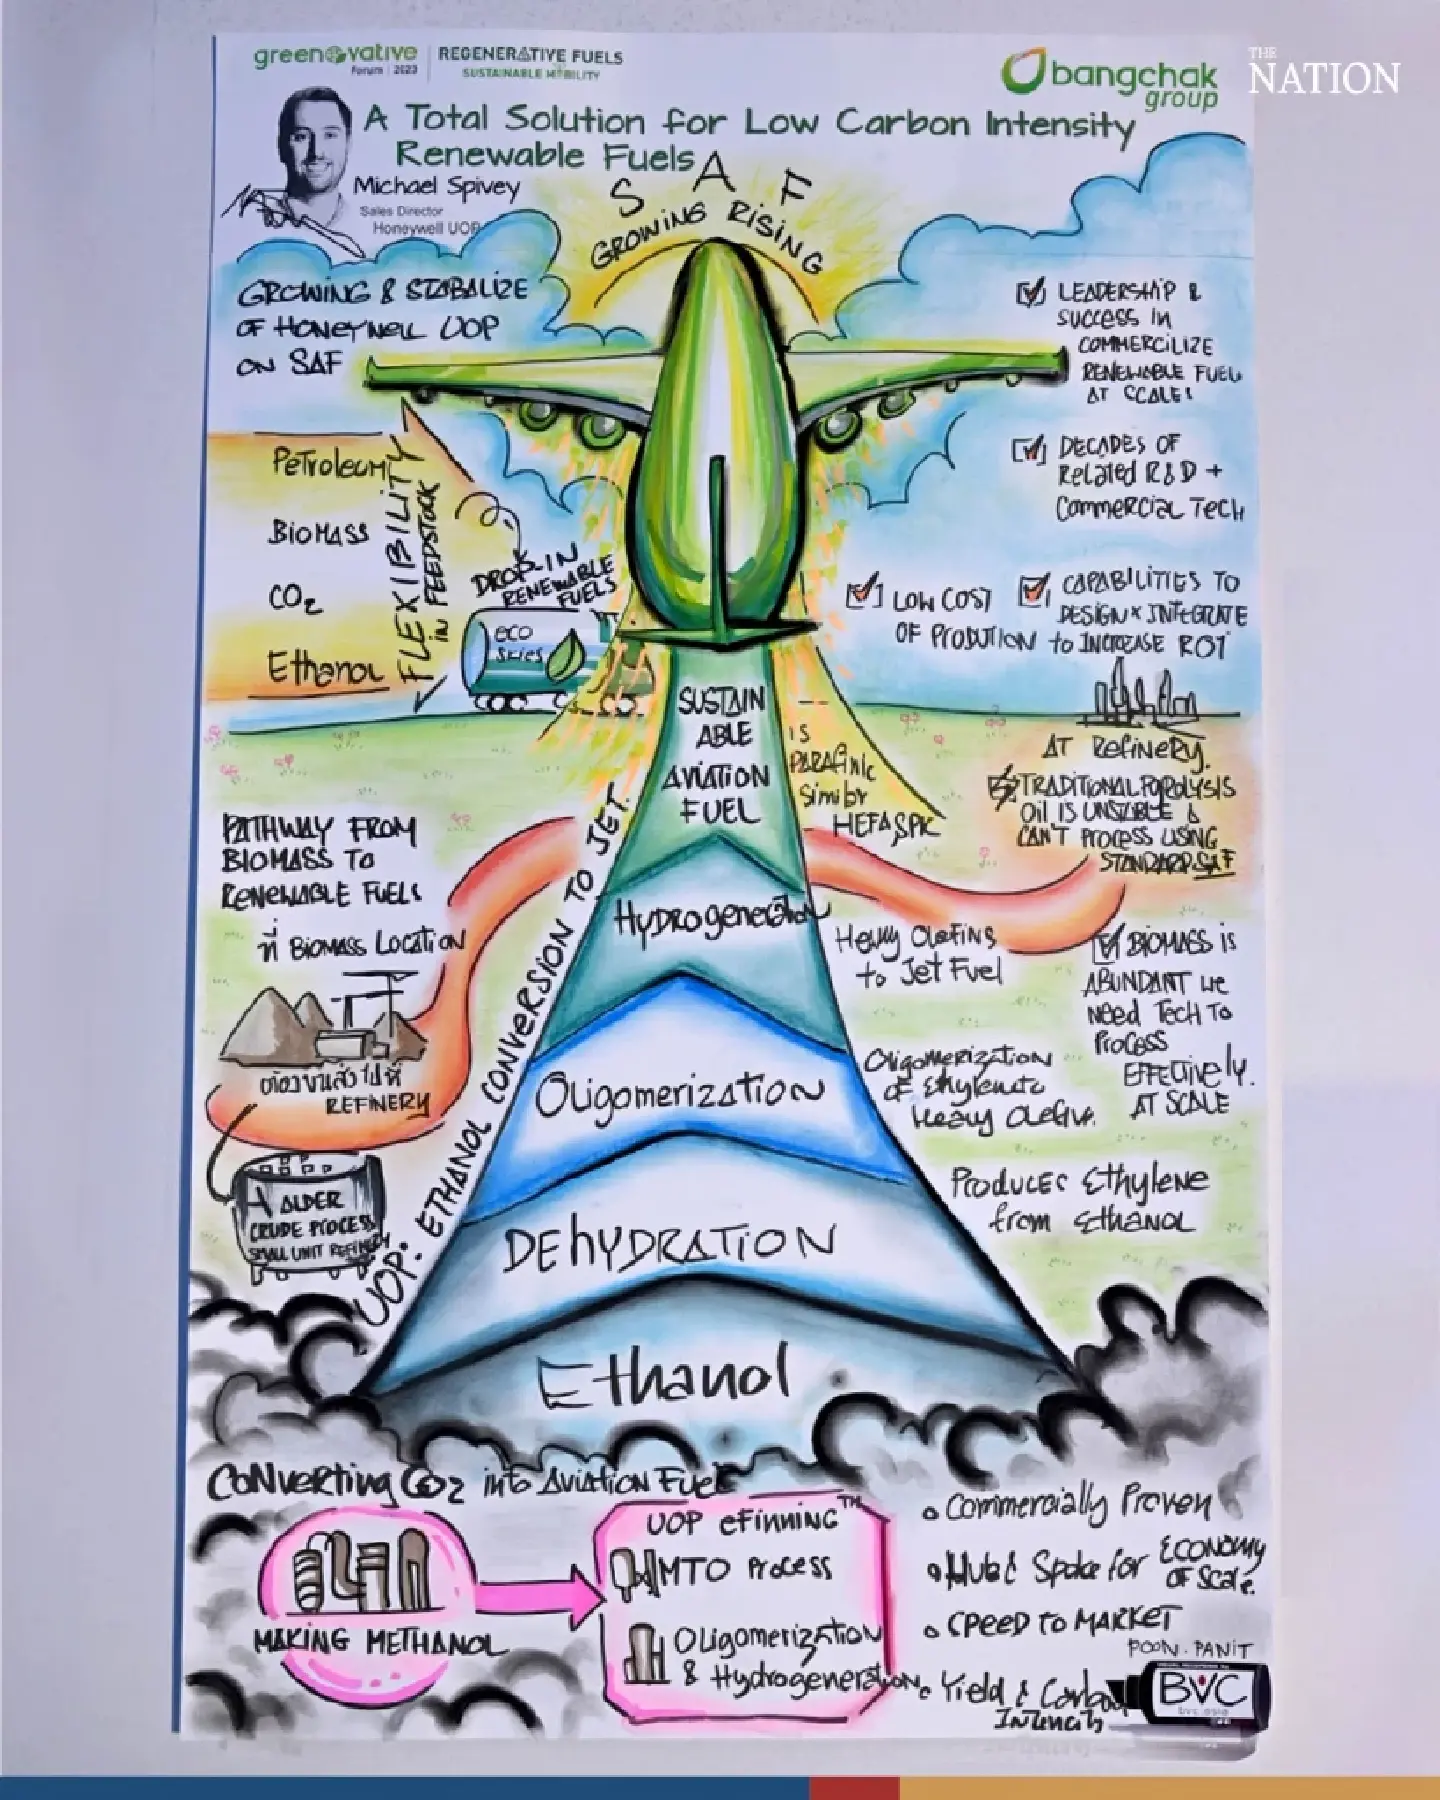 greenovative
Forum | 2023
REGENERATIVE FUELS
SUSTAINABLE MOBILITY
bangchak
group
THE
NATION
A Total Solution for Low Carbon Intensity
Renewable Fuels
Michael Spivey
Sales Director
Honeywell UOP
SAF
GROWING RISING
GROWING & STABALIZE
OF HONEYWELL UOP
ON SAF
Petroleum
BIOMASS
CO2
Ethanol
FLEXIBILITY
IN FEEDSTOCK
DROP-IN
RENEWABLE
FUELS
eco
skies
LEADERSHIP &
SUCCESS IN
COMMERCILIZE
RENEWABLE FUEL
AT SCALE!
DECADES OF
Related R&D +
COMMERCIAL TECH
LOW COST
OF PRODUTION
CAPABILITIES TO
DESIGN & INTEGRATE
to INCREASE ROI
SUSTAIN
ABLE
AVIATION
FUEL
IS
PARAFINIC
Similar
HEFA SPK
AT Refinery.
TRADITIONAL PYROLYSIS
Oil IS UNSTABLE &
CAN'T PROCESS USING
STANDARD SAF
PATHWAY FROM
BIOMASS TO
RENEWABLE FUELS
ที่ BIOMASS LOCATION
REFINERY
ALDER
CRUDE PROCESS
SMALL UNIT REFINERY
UOP: ETHANOL CONVERSION TO JET.
Hydrogeneration
Heavy Olefins
to Jet Fuel
BIOMASS is
ABUNDANT we
Need TECH TO
PROCESS
EFFECTIVELY.
AT SCALE
Oligomerization
Oligomerization
of Ethylene to
Heavy Olefin.
DEHYDRATION
Produces Ethylene
from Ethanol
Ethanol
Converting CO2 into Aviation Fuel
MAKING METHANOL
UOP eFinning™
MTO Process
Oligomerization
& Hydrogeneration
Commercially Proven
Hub & Spoke for ECONOMY
OF Scale.
SPEED TO MARKET
Yield & Carbon
Intencity
POON.PANIT
BVC